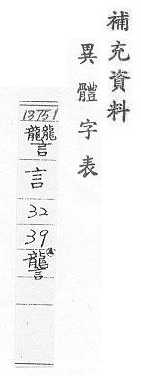 補充資料
異體字表
13751
讋
言
32
39
讋